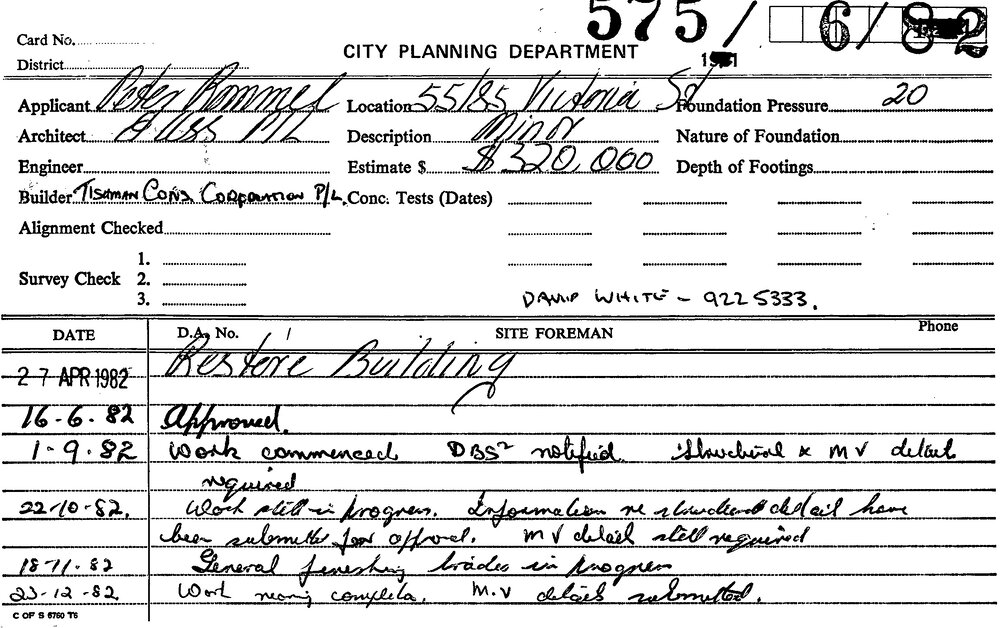 575/ 6/82
Card No.
CITY PLANNING DEPARTMENT
District
Applicant Peter Rommel Location 55/85 Victoria St Foundation Pressure 20
Architect P/L Description Minor Nature of Foundation
Engineer Estimate $ $320,000 Depth of Footings
Builder TISHMAN CONS. CORPORATION P/L. Conc. Tests (Dates)
Alignment Checked
1.
Survey Check 2.
3.
DAVID WHITE - 922 5333.
DATE D.A. No. SITE FOREMAN Phone
Restore Building
27 APR 1982
16-6-82 Approved.
1-9-82 Work commenced DBS notified Structural & MV detail
required
22-10-82. Work still in progress. Information re structural detail have
been submitted for approval. MV detail still required
18-11-82 General finishing trades in progress
23-12-82. Work nearing completion. M.V details submitted.
C OF S 5760 T6